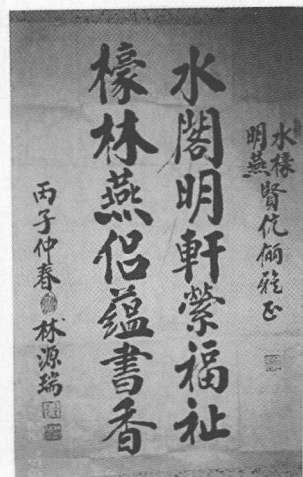 水檺
明燕 賢伉儷雅正
水閣明軒縈福祉
檺林燕侶蘊書香
丙子仲春 林源瑞